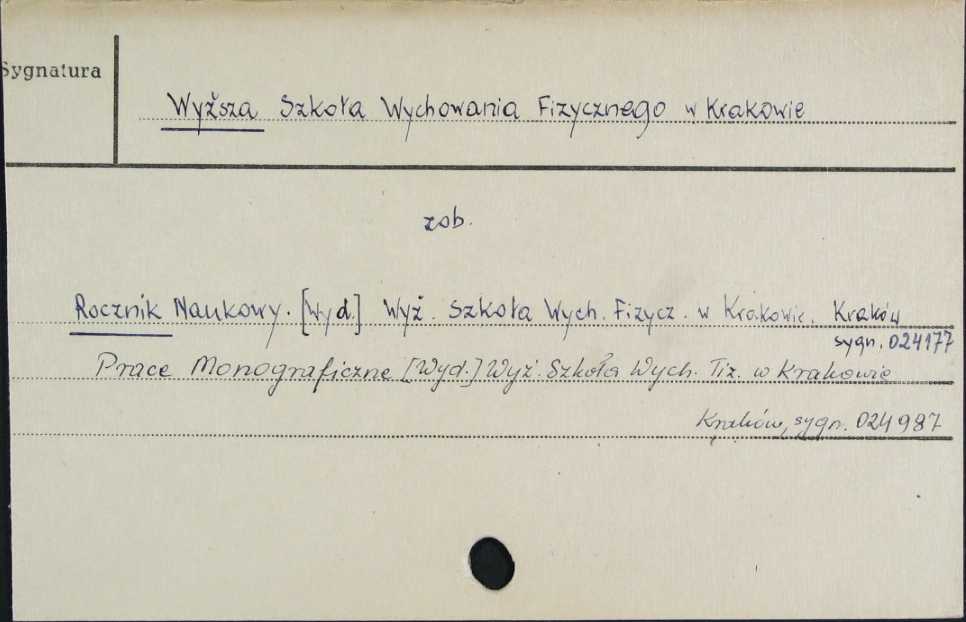 Sygnatura
Wyższa Szkoła Wychowania Fizycznego w Krakowie
zob.
Rocznik Naukowy. [Wyd.] Wyż. Szkoła Wych. Fizycz. w Krakowie. Kraków
sygn. 024177
Prace Monograficzne [Wyd.] Wyż. Szkoła Wych. Fiz. w Krakowie
Kraków, sygn. 024987